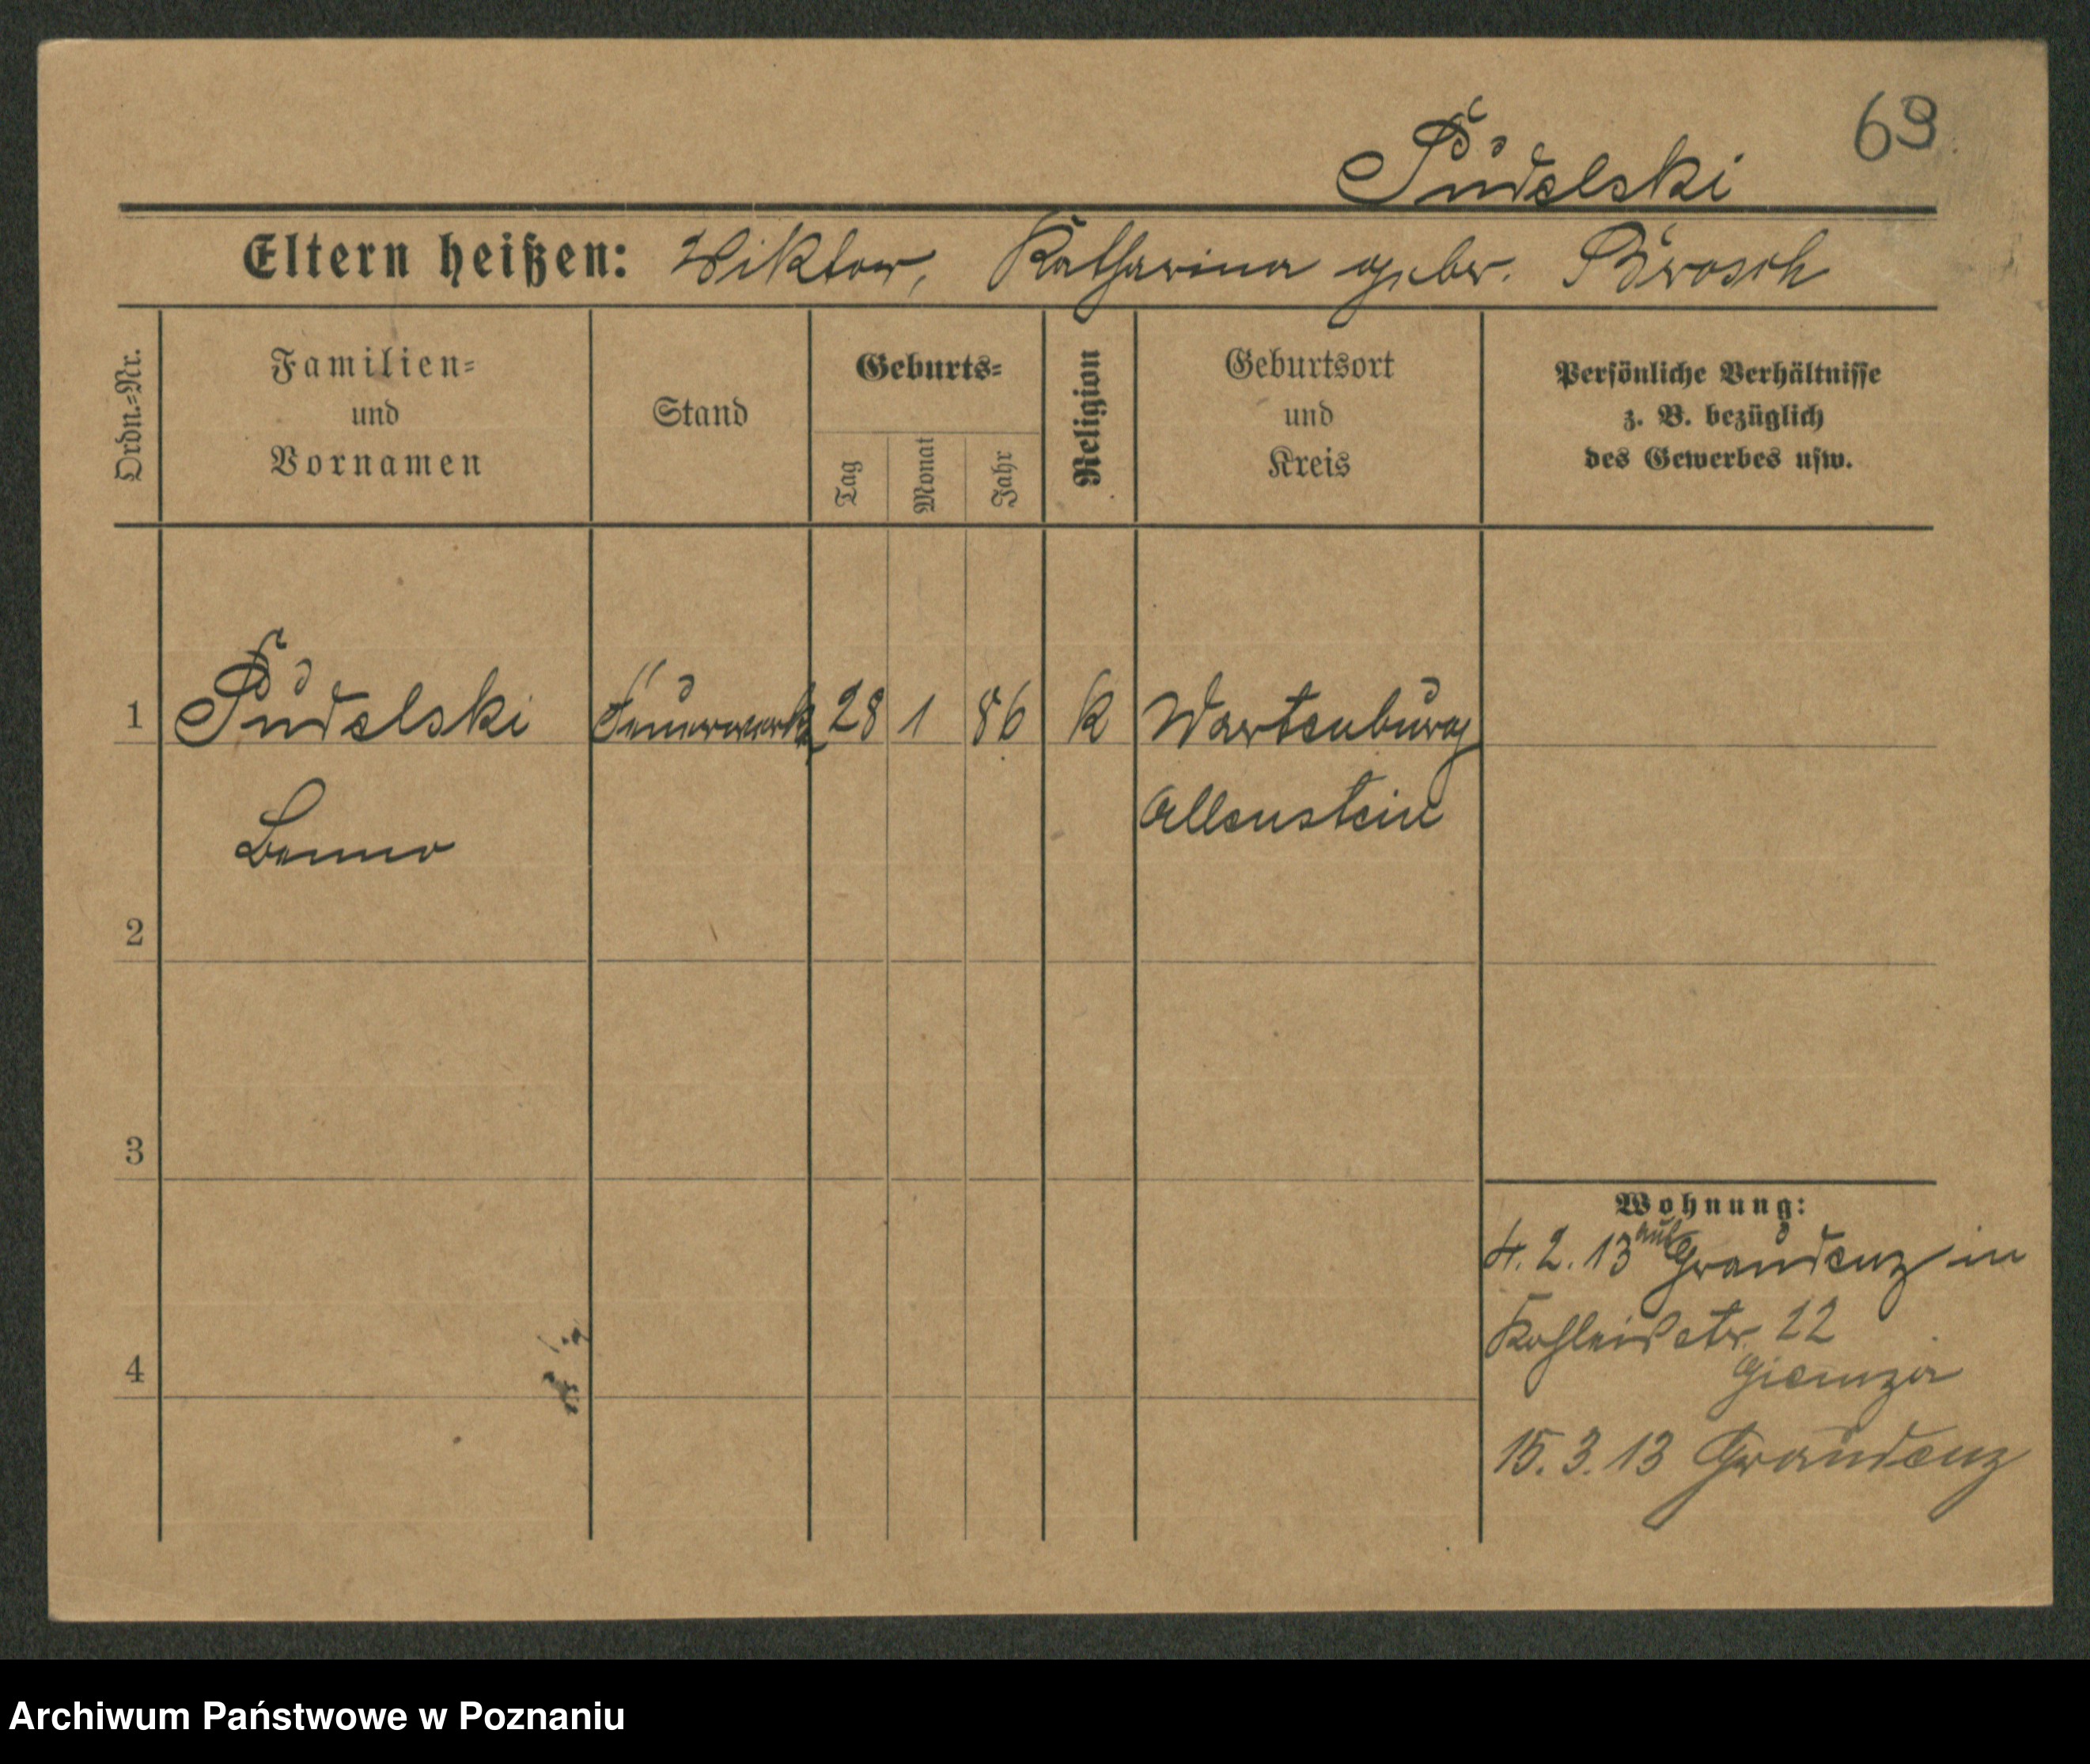 69
Pudelski
Eltern heißen: Wiktor, Katharina geber. Brosch
Ordn.=Nr.
Familien=
und
Vornamen
Stand
Geburts=
Tag
Monat
Jahr
Religion
Geburtsort
und
Kreis
Persönliche Verhältnisse
z. B. bezüglich
des Gewerbes usw.
1 Pudelski Feuerwerk 28 1 86 K Wartenburg
Benno Allenstein
2
3
Wohnung:
4. 2. 13 aus Graudenz in
str. 22
4
15. 3. 13 Graudenz
Archiwum Państwowe w Poznaniu